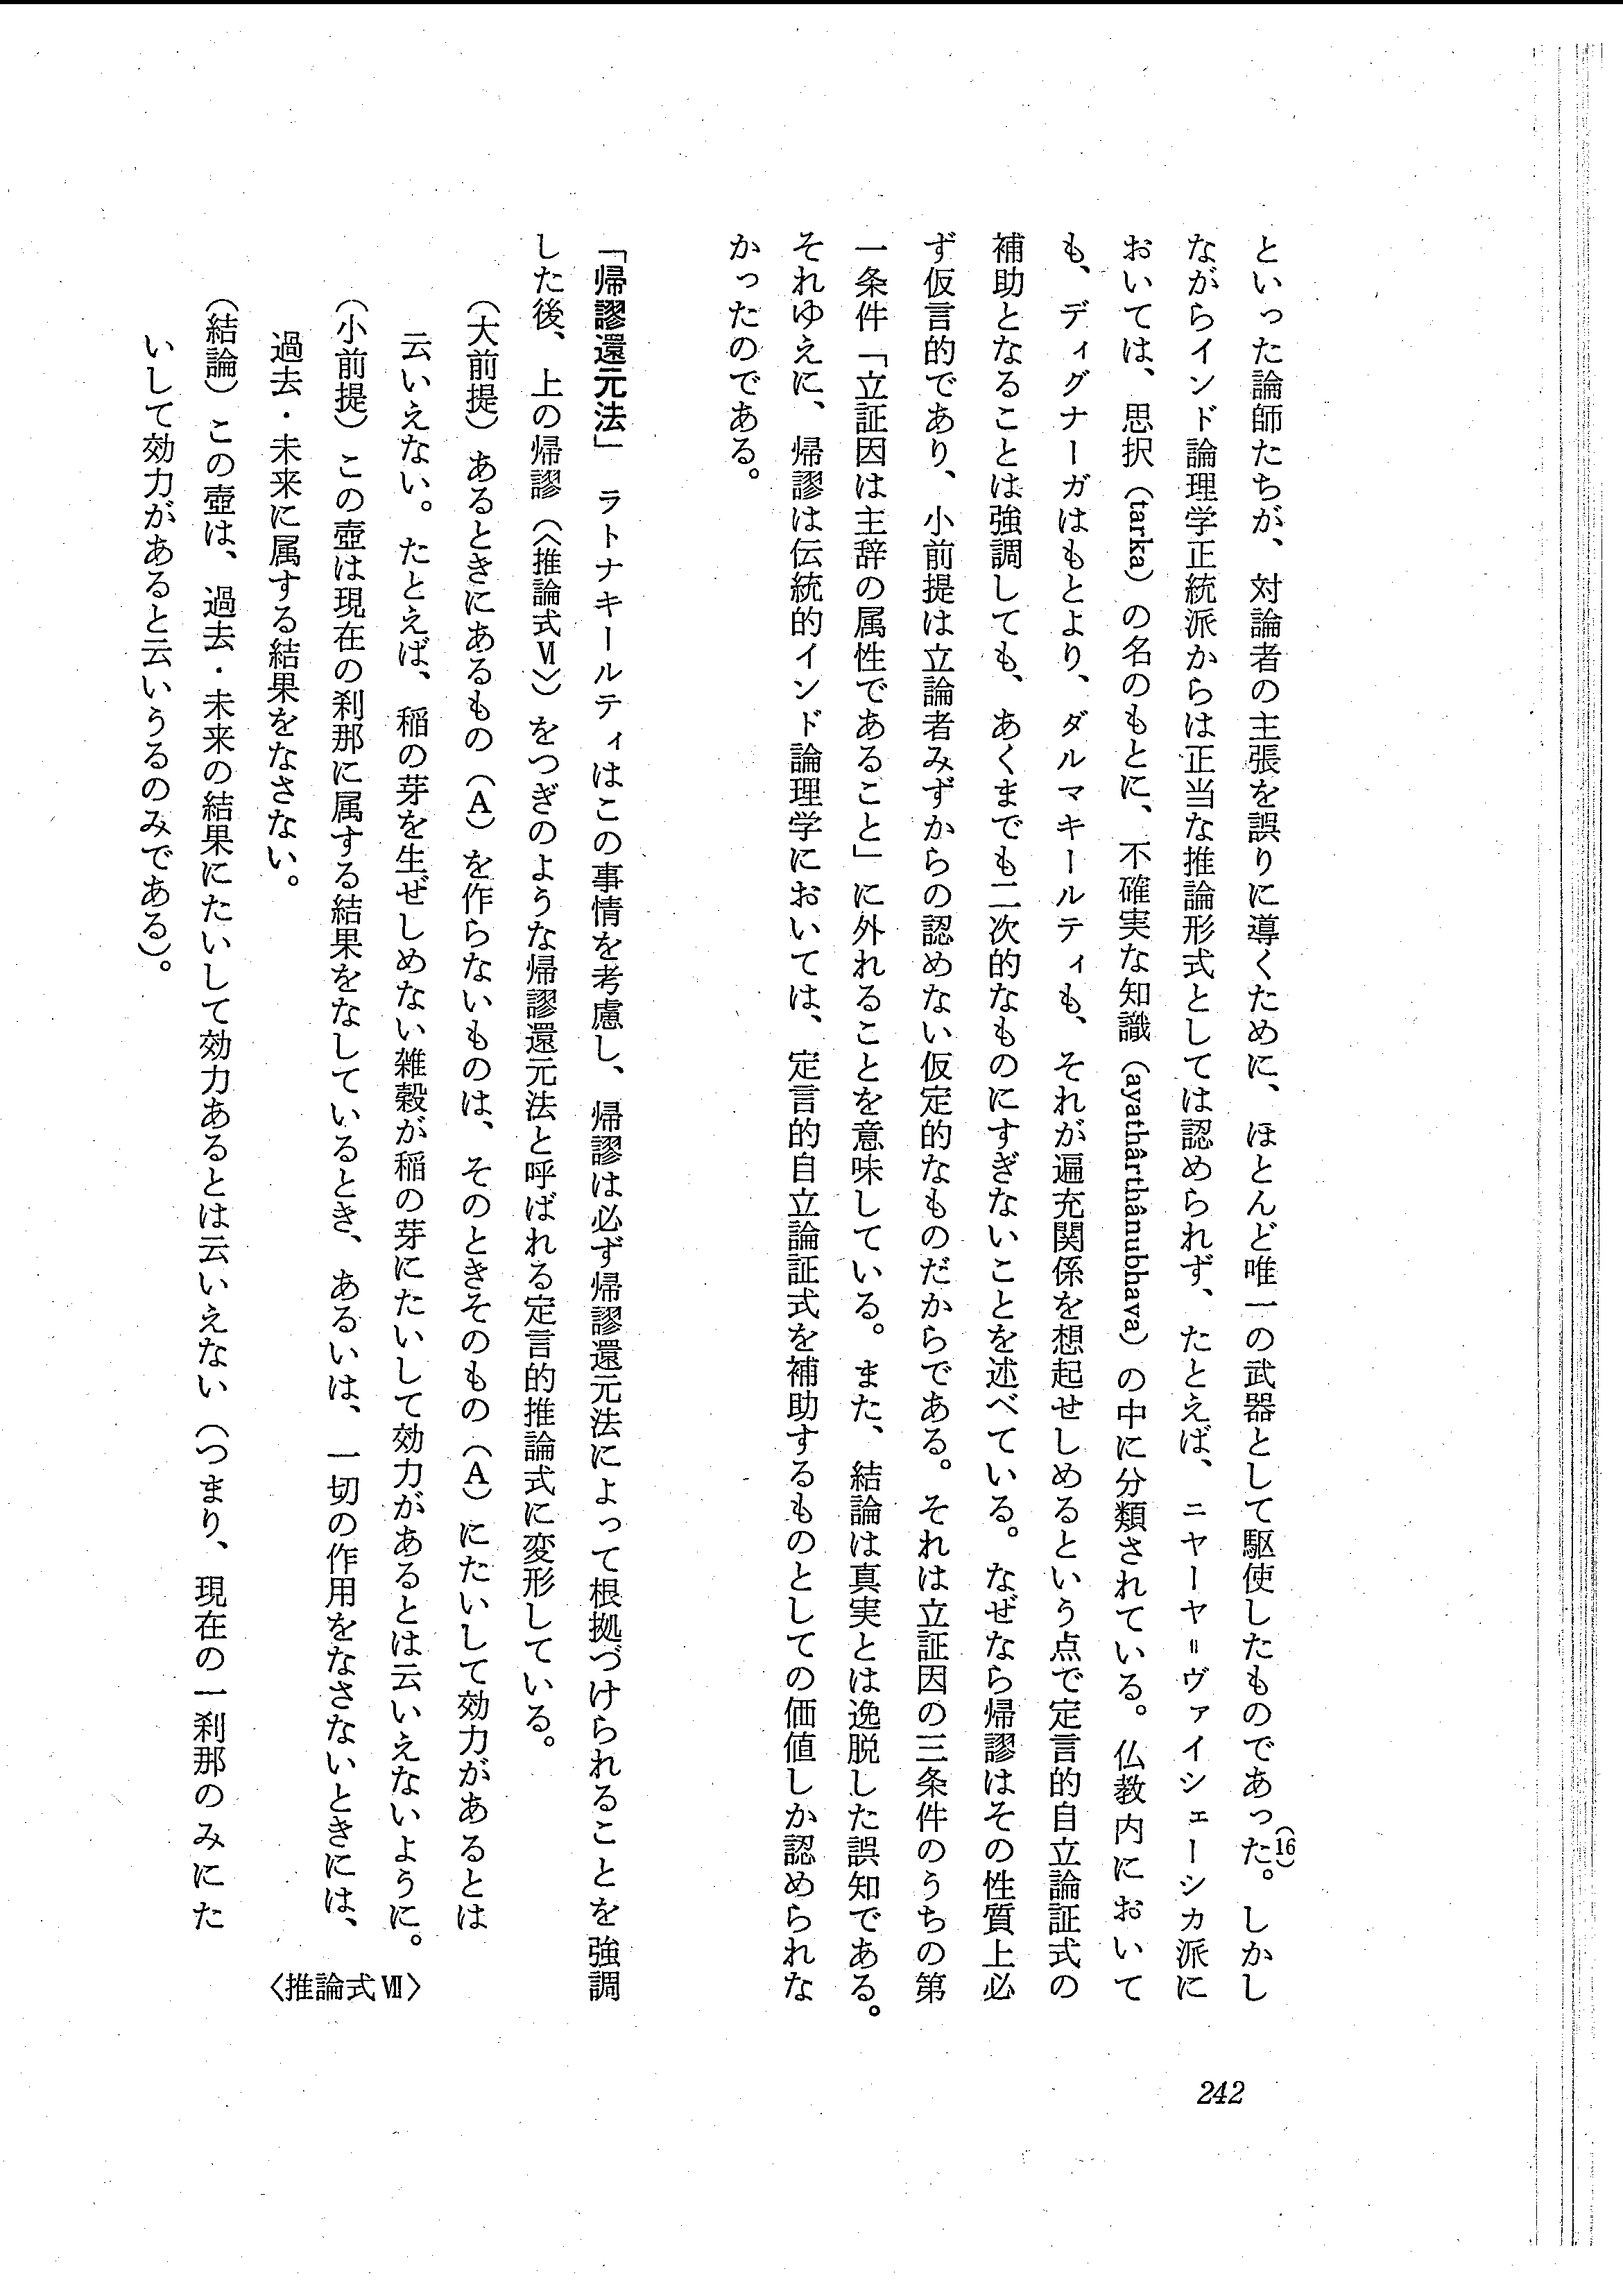 といった論師たちが、対論者の主張を誤りに導くために、ほとんど唯一の武器として駆使したものであった。(16)しかし
ながらインド論理学正統派からは正当な推論形式としては認められず、たとえば、ニヤーヤ＝ヴァイシェーシカ派に
おいては、思択（tarka）の名のもとに、不確実な知識（ayathârthânubhava）の中に分類されている。仏教内において
も、ディグナーガはもとより、ダルマキールティも、それが遍充関係を想起せしめるという点で定言的自立論証式の
補助となることは強調しても、あくまでも二次的なものにすぎないことを述べている。なぜなら帰謬はその性質上必
ず仮言的であり、小前提は立論者みずからの認めない仮定的なものだからである。それは立証因の三条件のうちの第
一条件「立証因は主辞の属性であること」に外れることを意味している。また、結論は真実とは逸脱した誤知である。
それゆえに、帰謬は伝統的インド論理学においては、定言的自立論証式を補助するものとしての価値しか認められな
かったのである。
「帰謬還元法」　ラトナキールティはこの事情を考慮し、帰謬は必ず帰謬還元法によって根拠づけられることを強調
した後、上の帰謬（〈推論式Ⅵ〉）をつぎのような帰謬還元法と呼ばれる定言的推論式に変形している。
（大前提）あるときにあるもの（A）を作らないものは、そのときそのもの（A）にたいして効力があるとは
云いえない。たとえば、稲の芽を生ぜしめない雑穀が稲の芽にたいして効力があるとは云いえないように。
（小前提）この壺は現在の刹那に属する結果をなしているとき、あるいは、一切の作用をなさないときには、
過去・未来に属する結果をなさない。
〈推論式Ⅶ〉
（結論）この壺は、過去・未来の結果にたいして効力あるとは云いえない（つまり、現在の一刹那のみにた
いして効力があると云いうるのみである）。
242